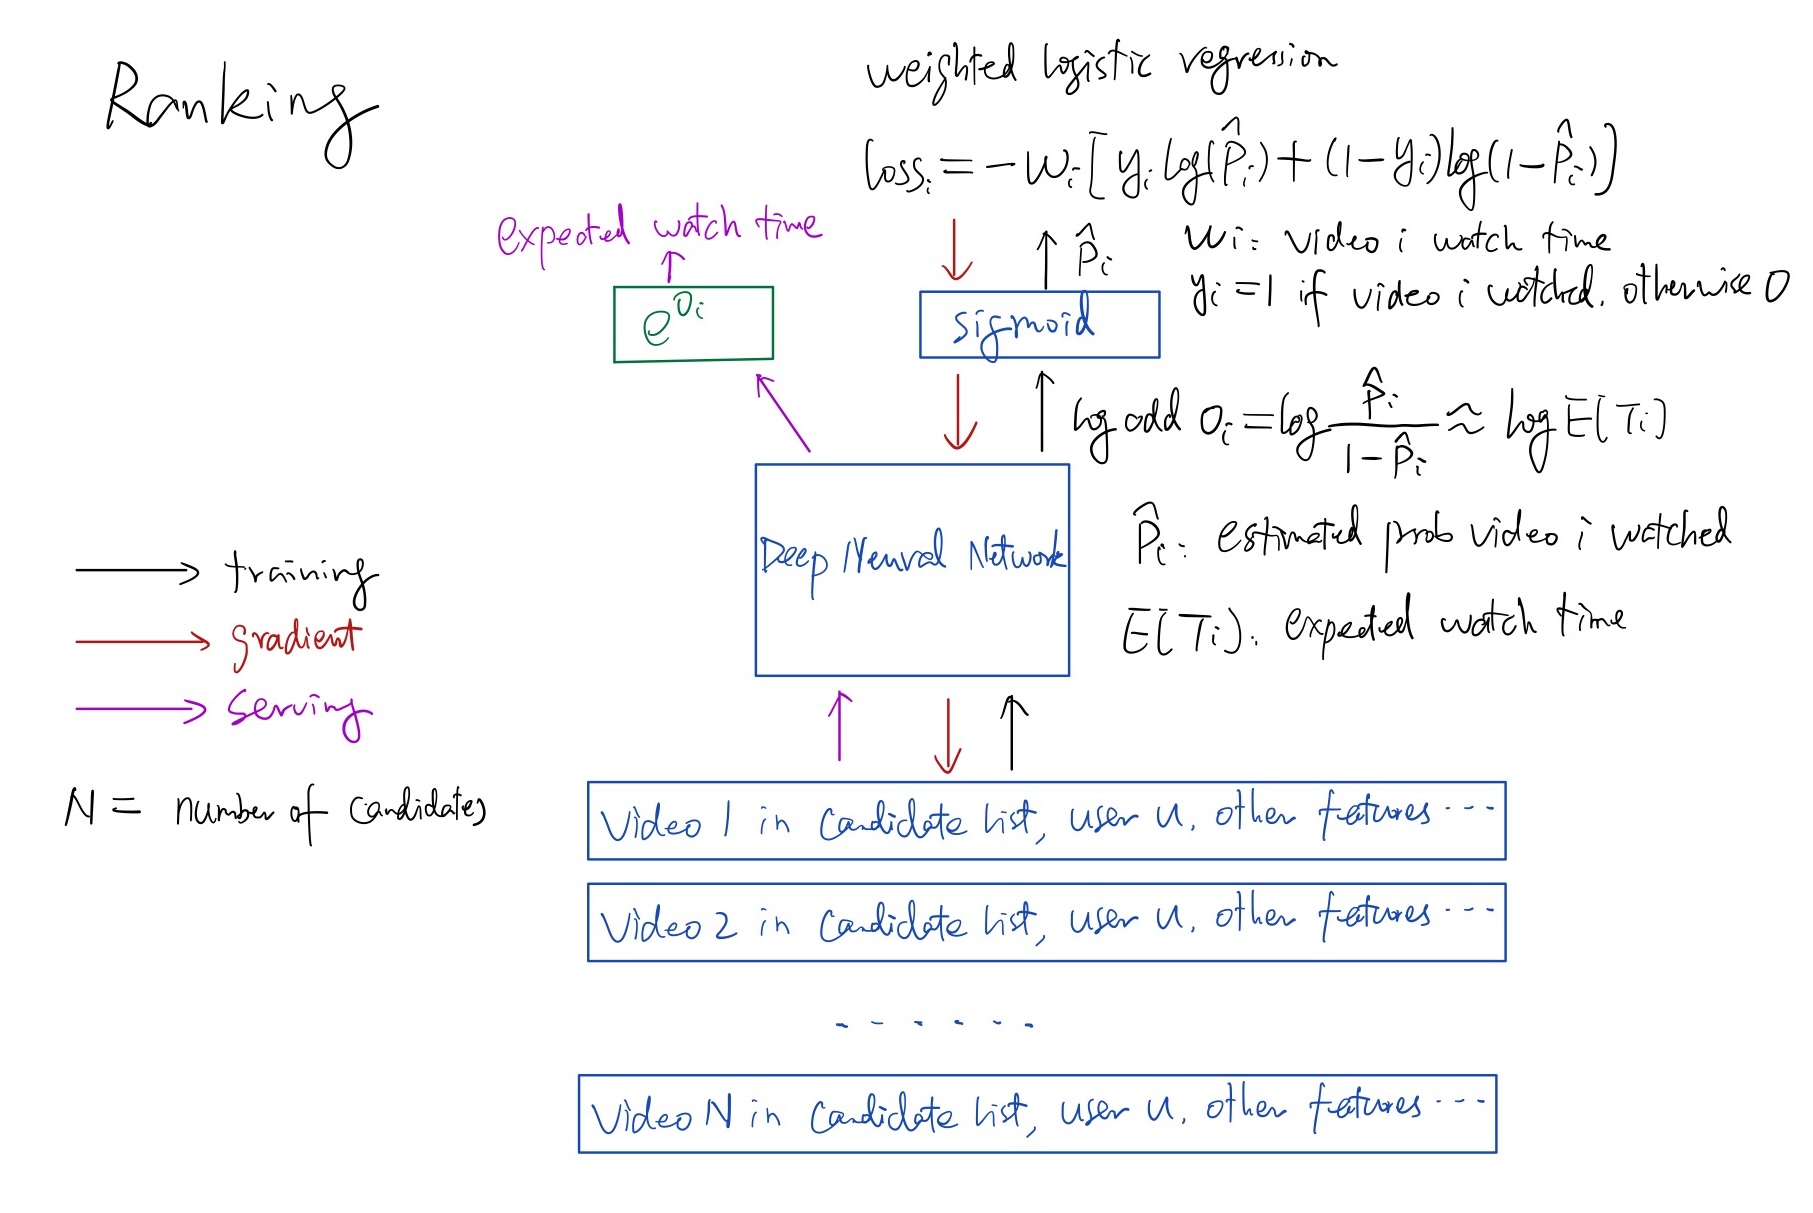 Ranking
weighted logistic regression
loss_i = -w_i[y_i log(p̂_i) + (1-y_i)log(1-p̂_i)]
expected watch time
p̂_i
w_i: video i watch time
y_i = 1 if video i watched, otherwise 0
e^{o_i}
sigmoid
log odd o_i = log p̂_i / (1-p̂_i) ≈ log E(T_i)
Deep Neural Network
p̂_i: estimated prob video i watched
E(T_i): expected watch time
training
gradient
serving
N = number of candidates
Video 1 in candidate list, user u, other features ...
Video 2 in candidate list, user u, other features ...
......
Video N in candidate list, user u, other features ...